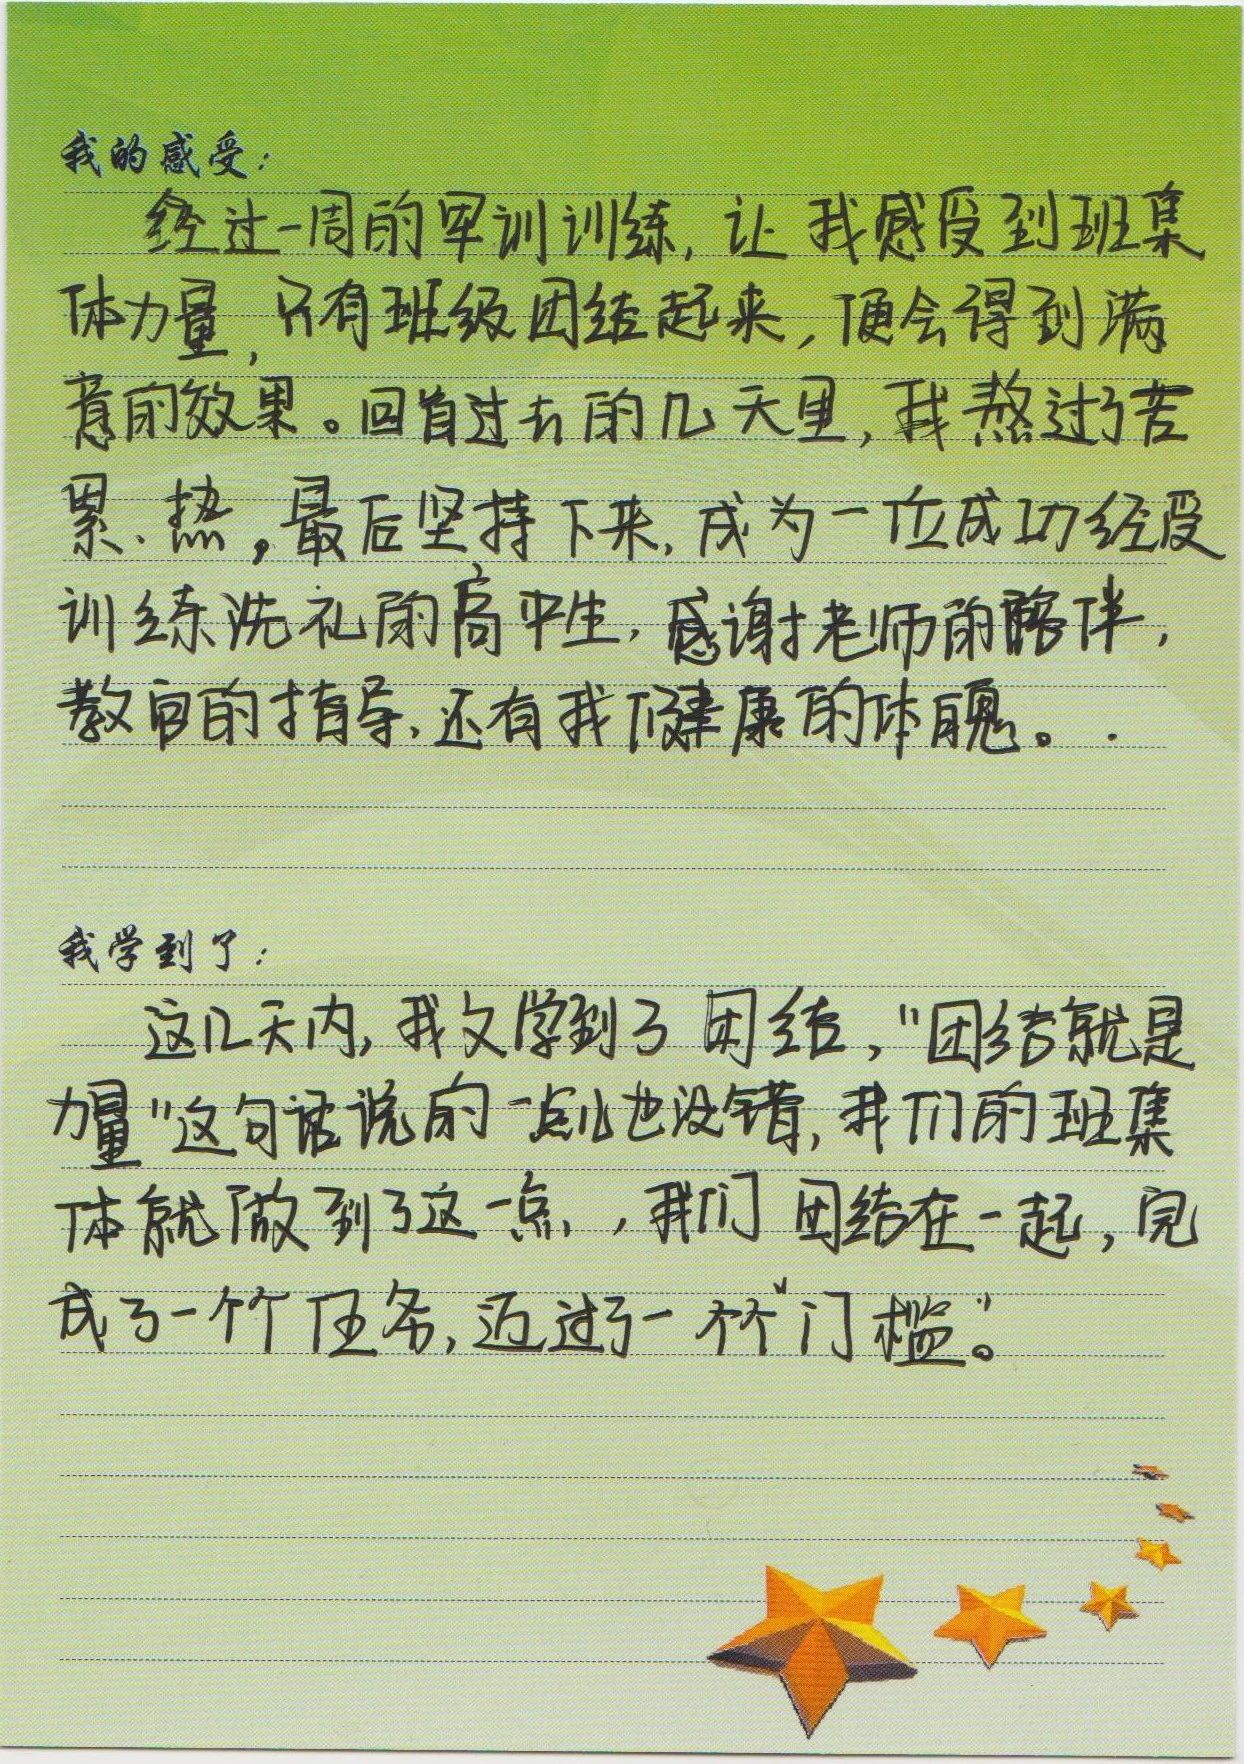 我的感受：
经过一周的军训训练，让我感受到班集
体力量，只有班级团结起来，便会得到满
意的效果。回首过去的几天里，我熬过了苦
累、热，最后坚持下来，成为一位成功经受
训练洗礼的高中生，感谢老师的陪伴，
教官的指导，还有我健康的体魄。
我学到了：
这几天内，我又学到了团结，“团结就是
力量”这句话说的一点儿也没错，我们的班集
体就做到了这一点，我们团结在一起，完
成了一个个任务，迈过了一个个“门槛”。